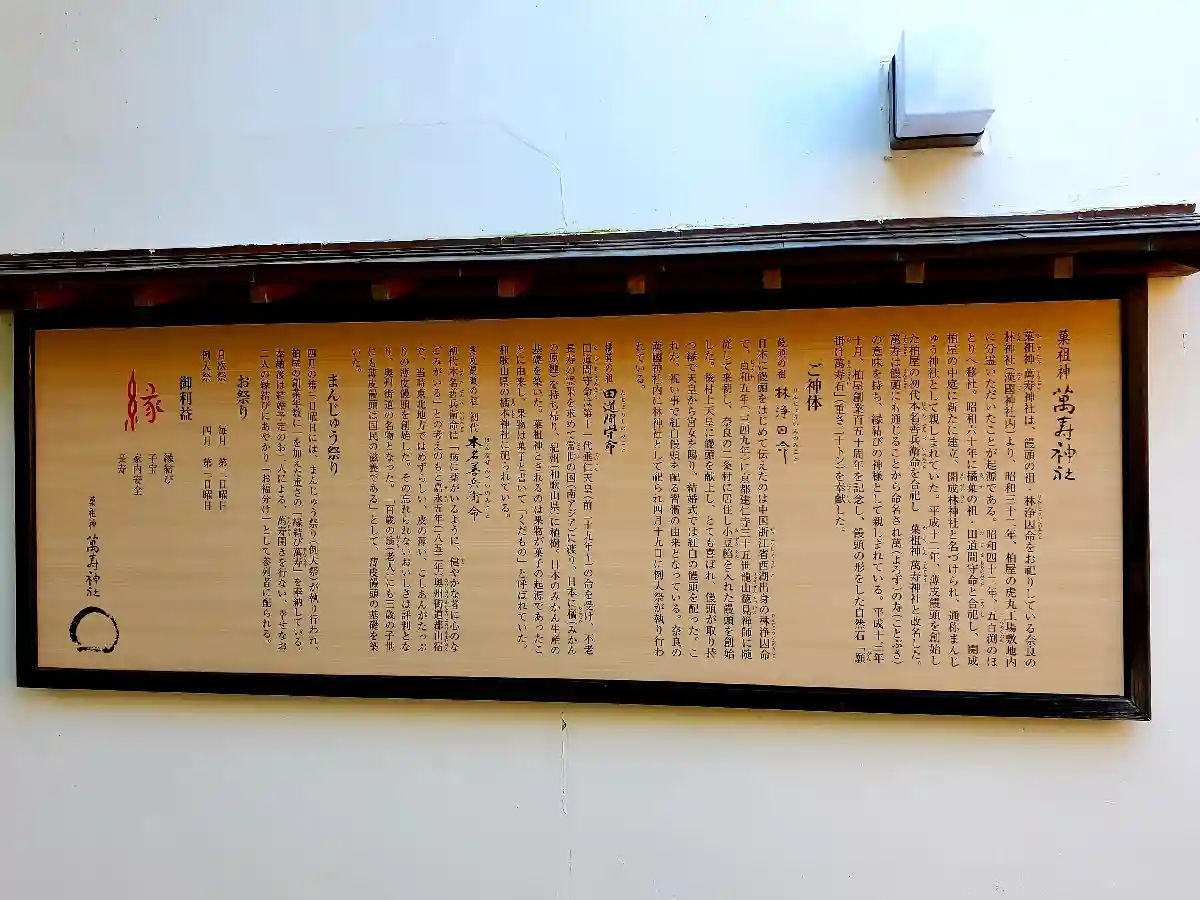 菓祖神 萬寿神社
菓祖神 萬寿神社は、饅頭の祖・林浄因命をお祀りしている奈良の
林神社(漢國神社内)より、昭和三十二年、柏屋の虎丸工場敷地内
に分霊いただいたことが起源である。昭和四十三年、五百渕のほ
とりへ移社。昭和六十年に橘菓の祖・田道間守命と合祀し、開成
柏屋の中庭に新たに建立。開成林神社と名づけられ、通称まんじ
ゅう神社として親しまれていた。平成十一年、薄皮饅頭を創始し
た柏屋の初代本名善兵衛命を合祀し、菓祖神 萬寿神社と改名した。
萬寿は饅頭にも通じることから命名され萬(よろず)の寿(ことぶき)
の意味を持ち、縁結びの神様として親しまれている。平成十三年
十月、柏屋創業百五十周年を記念し、饅頭の形をした自然石「願
掛け萬寿石」(重さ二十トン)を奉献した。
ご神体
饅頭の祖 林浄因命
日本に饅頭をはじめて伝えたのは中国浙江省西湖出身の林浄因命
で、貞和五年(一三四九年)に京都建仁寺三十五世龍山徳見禅師に随
従して来朝し、奈良の二条村に居住し小豆餡を入れた饅頭を創始
した。後村上天皇に饅頭を献上し、とても喜ばれ、饅頭が取り持
つ縁で天皇から宮女を賜り、結婚式では紅白の饅頭を配った。こ
れが、祝い事で紅白饅頭を配る習慣の由来となっている。奈良の
漢國神社内に林神社として祀られ四月十九日に例大祭が執り行わ
れている。
橘菓の祖 田道間守命
田道間守命は第十一代垂仁天皇(前二十九年〜)の命を受け、不老
長寿の霊菓を求めて常世の国(南アジア)に渡り、日本に橘(みかん
の原種)を持ち帰り、紀州(和歌山県)に植樹。日本のみかん生産の
基礎を築いた。菓祖神とされるのは果物が菓子の起源であったこ
とに由来し、果物は菓子と書いて「くだもの」と呼ばれていた。
和歌山県の橘本神社に祀られている。
薄皮饅頭の祖 初代 本名善兵衛命
初代本名善兵衛命は「病に薬がいるように、健やかな者に心のな
ごみがいる」との考えのもと嘉永五年(一八五二年)奥州街道郡山宿
で、当時東北地方ではめずらしい、皮の薄い、こしあんがたっぷ
りの薄皮饅頭を創始した。その忘れられないおいしさは評判とな
り、奥州街道の名物となった。「百歳の翁(老人)にも三歳の子供
にも薄皮饅頭は国民の滋養である」として、薄皮饅頭の基礎を築
いた。
まんじゅう祭り
四月の第三日曜日には、まんじゅう祭り(例大祭)が執り行われ、
柏屋の創業年数に一を加えた重さの「縁結び萬寿」を奉納している。
奉納後は結婚予定のお二人による、萬寿開きを行ない、幸せなお
二人の縁結びにあやかり、「お福分け」として参列者に配られる。
お祭り
月次祭 毎月 第三日曜日
例大祭 四月 第三日曜日
御利益
縁結び
子宝
家内安全
長寿
縁
菓祖神 萬寿神社